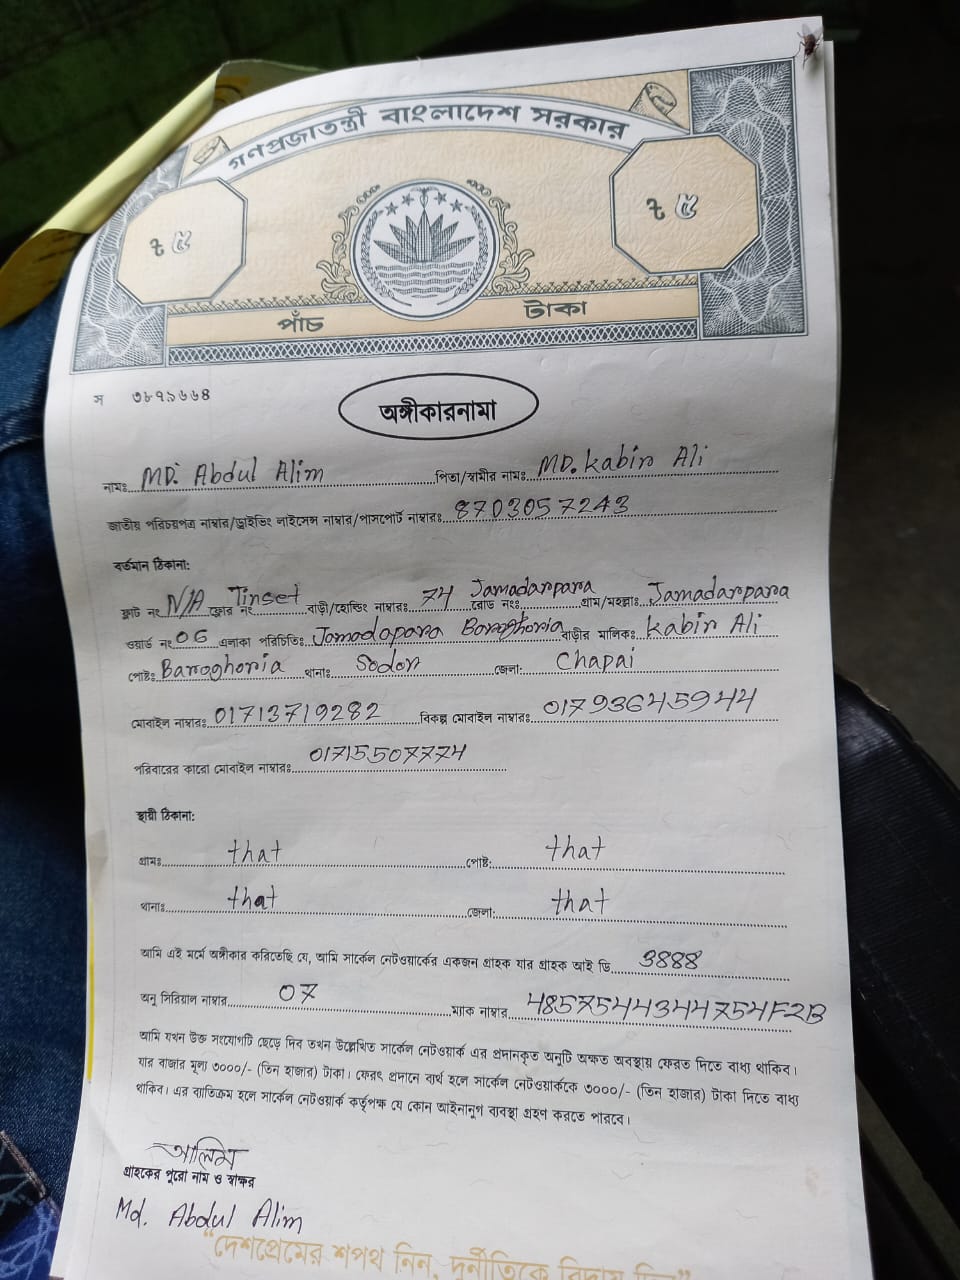 গণপ্রজাতন্ত্রী বাংলাদেশ সরকার
৳ ৫ ৳ ৫
পাঁচ টাকা
স ৩৮৭৯৬৬৪
অঙ্গীকারনামা
নামঃ MD. Abdul Alim পিতা/স্বামীর নামঃ MD. Kabir Ali
জাতীয় পরিচয়পত্র নাম্বার/ড্রাইভিং লাইসেন্স নাম্বার/পাসপোর্ট নাম্বারঃ 8703057243
বর্তমান ঠিকানা:
ফ্লাট নং N/A ফ্লোর নং Tinset বাড়ী/হোল্ডিং নাম্বারঃ 74 রোড নংঃ Jamadarpara গ্রাম/মহল্লাঃ Jamadarpara
ওয়ার্ড নং 06 এলাকা পরিচিতিঃ Jamadapara Baroghoria বাড়ীর মালিকঃ Kabir Ali
পোষ্টঃ Baroghoria থানাঃ Sodor জেলা: Chapai
মোবাইল নাম্বারঃ 01713719282 বিকল্প মোবাইল নাম্বারঃ 01793645944
পরিবারের কারো মোবাইল নাম্বারঃ 01715507774
স্থায়ী ঠিকানা:
গ্রামঃ that পোষ্ট: that
থানাঃ that জেলা: that
আমি এই মর্মে অঙ্গীকার করিতেছি যে, আমি সার্কেল নেটওয়ার্কের একজন গ্রাহক যার গ্রাহক আই ডি 3888
অনু সিরিয়াল নাম্বার 07 ম্যাক নাম্বার 4857544344754F2B
আমি যখন উক্ত সংযোগটি ছেড়ে দিব তখন উল্লেখিত সার্কেল নেটওয়ার্ক এর প্রদানকৃত অনুটি অক্ষত অবস্থায় ফেরত দিতে বাধ্য থাকিব।
যার বাজার মূল্য ৩০০০/- (তিন হাজার) টাকা। ফেরৎ প্রদানে ব্যর্থ হলে সার্কেল নেটওয়ার্ককে ৩০০০/- (তিন হাজার) টাকা দিতে বাধ্য
থাকিব। এর ব্যতিক্রম হলে সার্কেল নেটওয়ার্ক কর্তৃপক্ষ যে কোন আইনানুগ ব্যবস্থা গ্রহণ করতে পারবে।
আলিম
গ্রাহকের পুরো নাম ও স্বাক্ষর
Md. Abdul Alim
"দেশপ্রেমের শপথ নিন, দুর্নীতিকে বিদায় দিন"